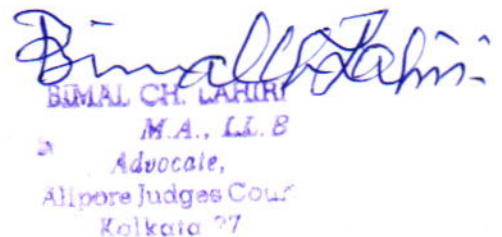 Bimal Ch Lahiri
BIMAL CH. LAHIRI
M.A., LL.B
Advocate,
Alipore Judges Cour
Kolkata 27